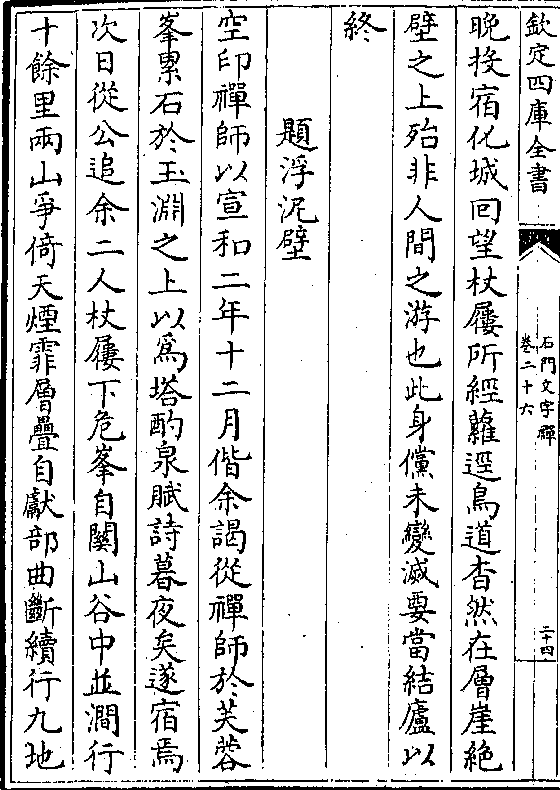 欽定四庫全書
石門文字禪
卷二十六
二十四
晚投宿化城回望杖屨所經蘿逕鳥道杳然在層崖絶
壁之上殆非人間之游也此身儻未變滅要當結廬以
終
題浮泥壁
空印禪師以宣和二年十二月偕余謁從禪師於芙蓉
峯累石於玉淵之上以爲塔酌泉賦詩暮夜矣遂宿焉
次日從公追余二人杖屨下危峯自闗山谷中並澗行
十餘里兩山爭倚天煙霏層疊自獻部曲斷續行九地